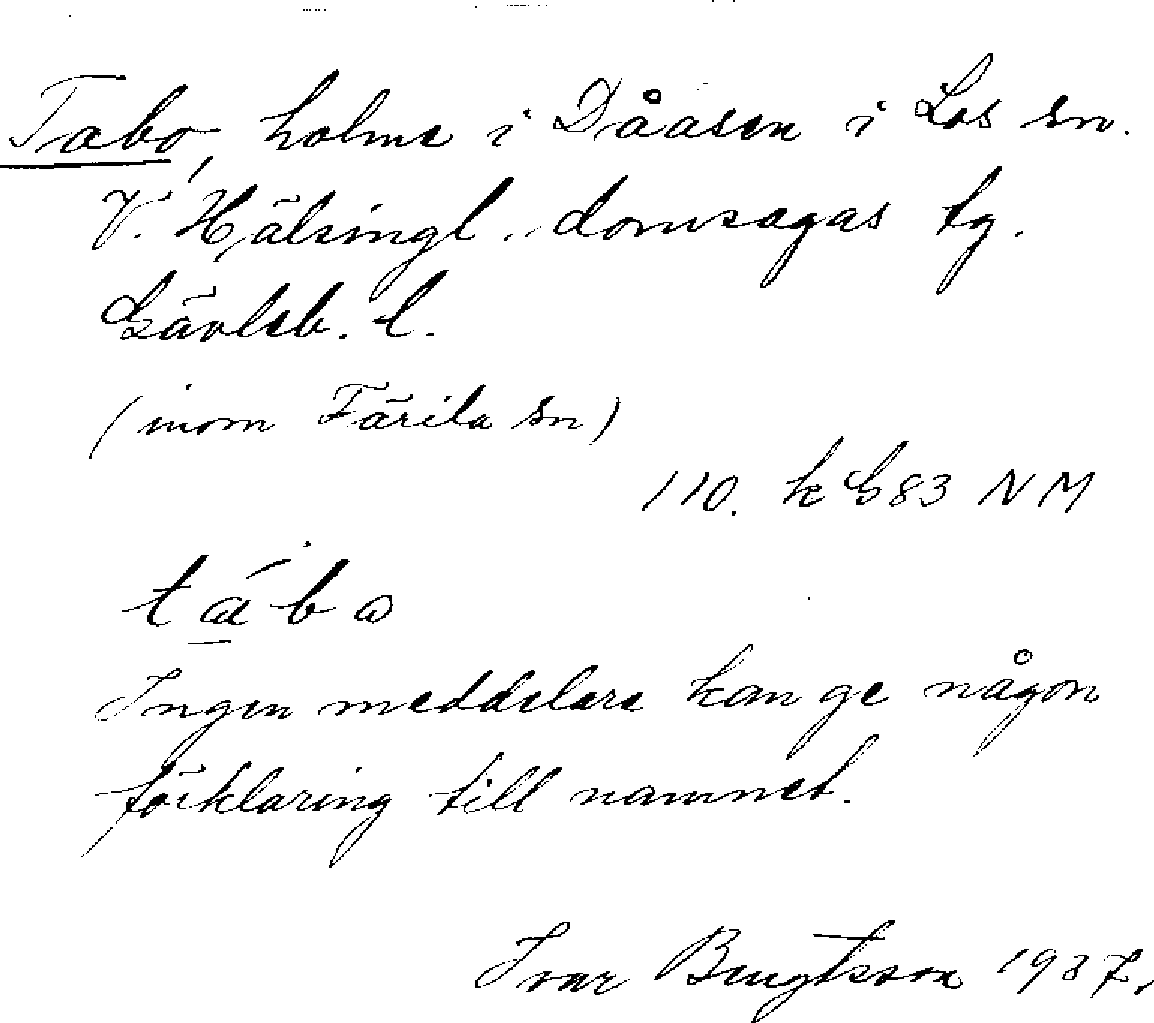 Tabo, holme i Dåasen i Los sn.
V. Hälsingl. domsagas tg.
Gävleb. l.
(inom Färila sn)
110. k G83 NM
tábo
Ingen meddelare kan ge någon
förklaring till namnet.
Ivar Bengtsson 1937.